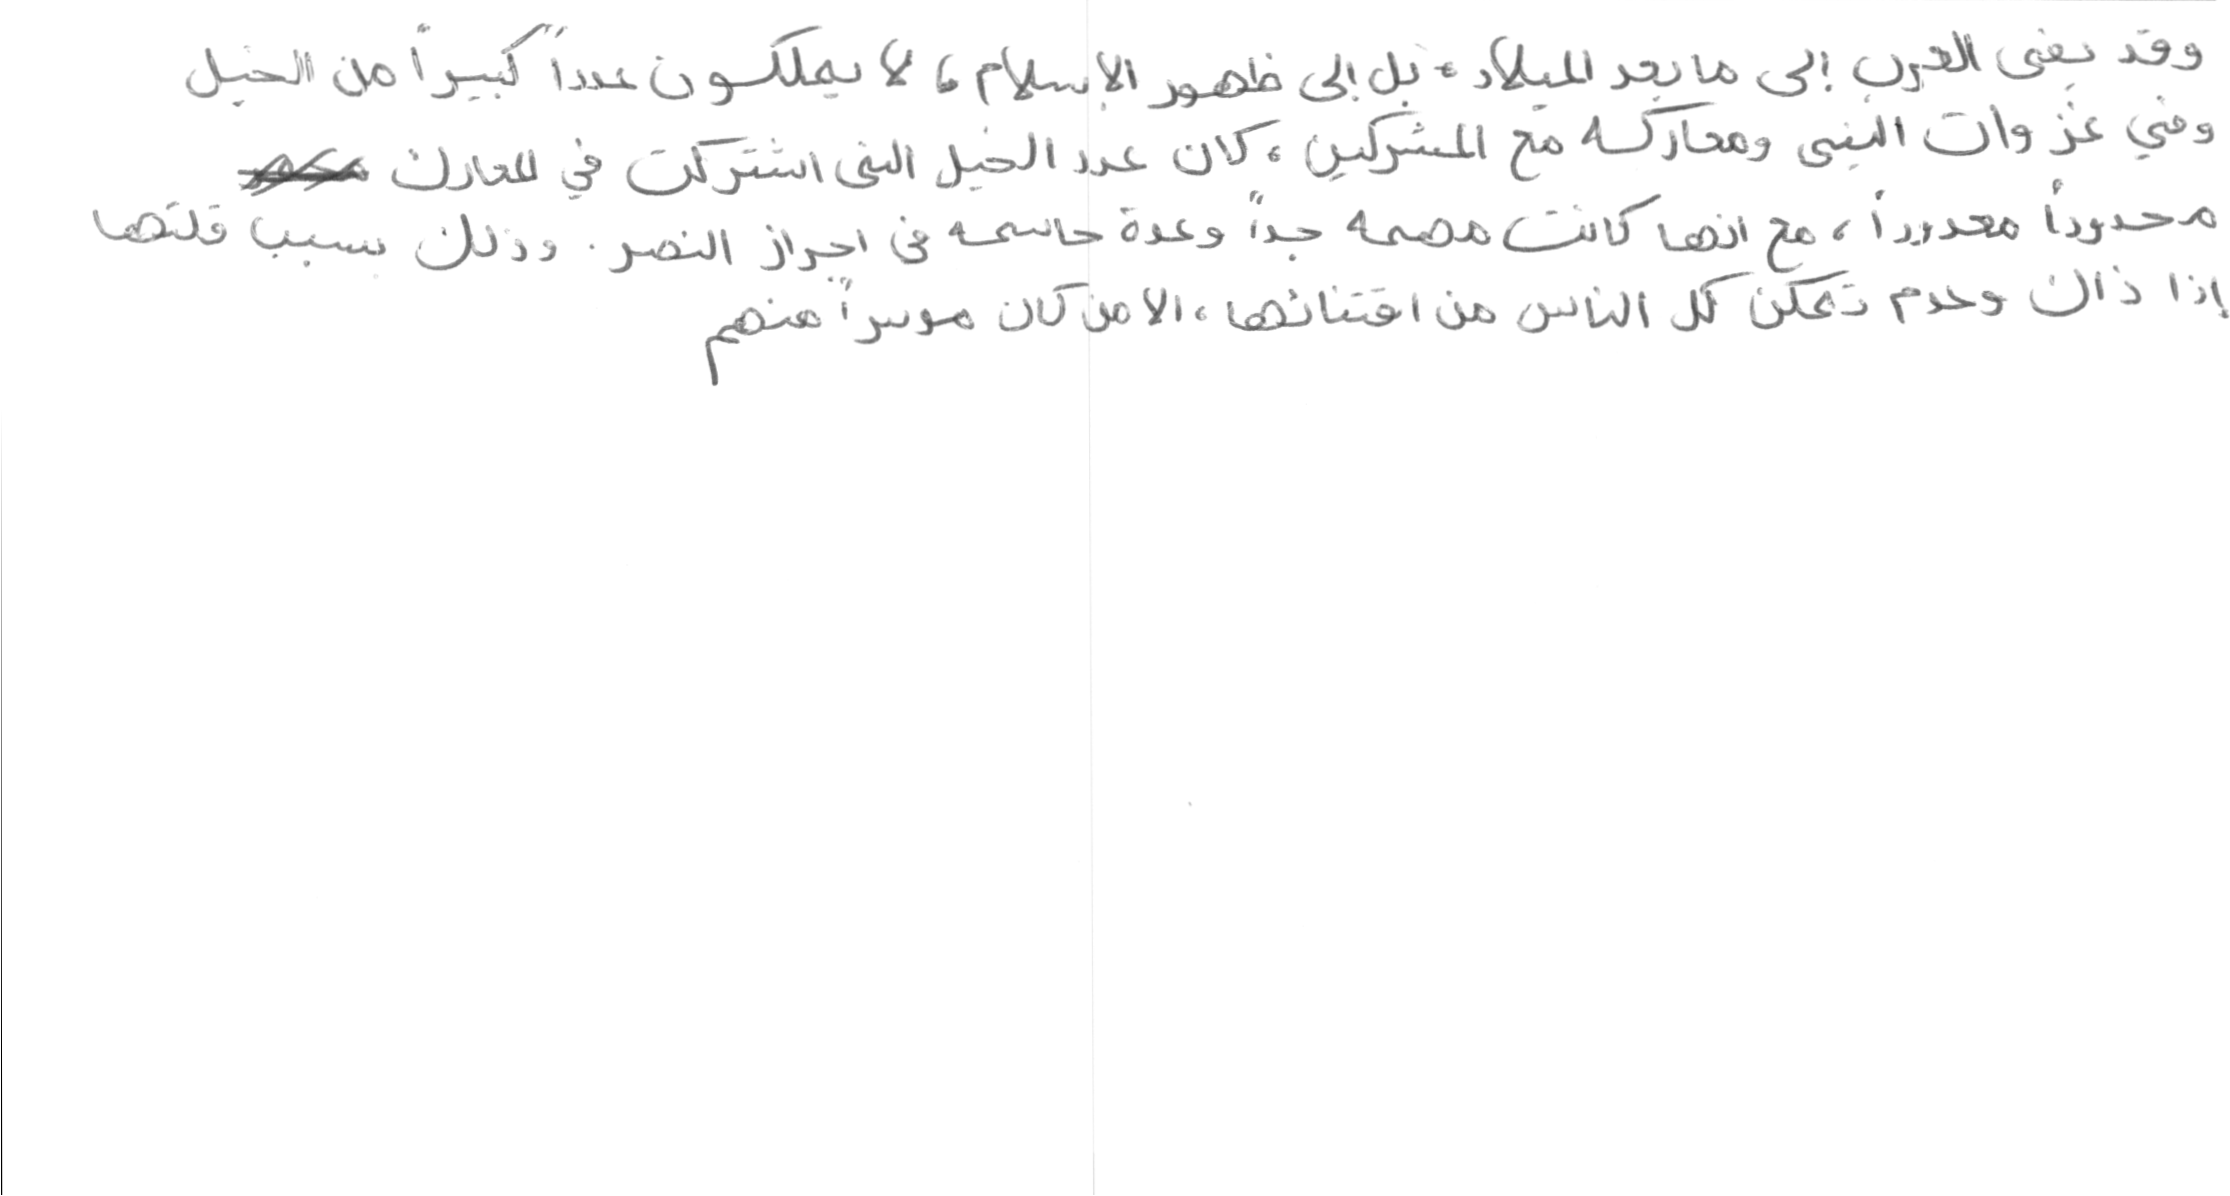 وقد بقى العرب إلى ما بعد الميلاد، بل إلى ظهور الإسلام، لا يملكون عدداً كبيراً من الخيل
وفي غزوات النبى ومعاركه مع المشركين، كان عدد الخيل التى اشتركت في المعارك
محدوداً معدوداً، مع انها كانت مهمه جداً وعدة حاسمه فى احراز النصر. وذلك بسبب قلتها
إذا ذاك وعدم تمكن كل الناس من اقتنائها، الا من كان موسراً منهم